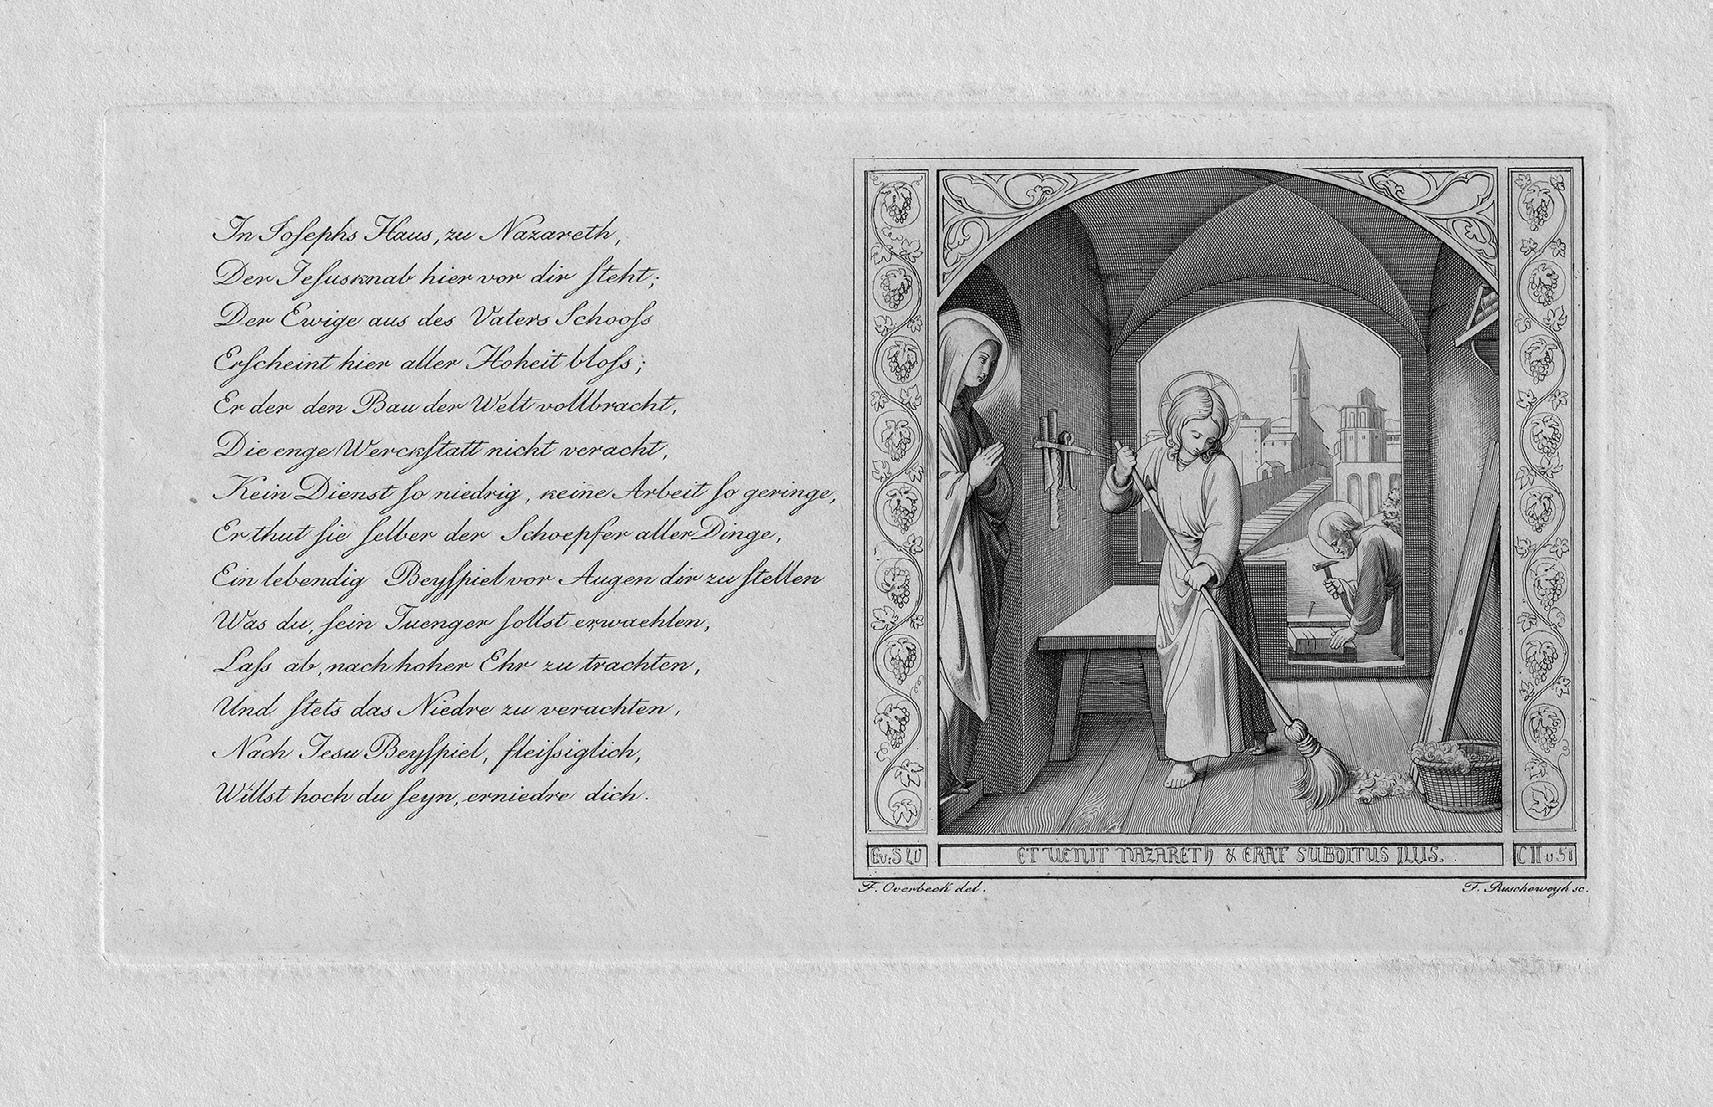 In Joſephs Haus, zu Nazareth,
Der Jeſusknab hier vor dir ſteht;
Der Ewige aus des Vaters Schooſs
Erſcheint hier aller Hoheit bloſs;
Er der den Bau der Welt vollbracht,
Die enge Werckſtatt nicht veracht,
Kein Dienst ſo niedrig, keine Arbeit ſo geringe,
Er thut ſie ſelber der Schoepfer aller Dinge,
Ein lebendig Beyſpiel vor Augen dir zu ſtellen
Was du, ſein Juenger ſollst erwaehlen,
Laſs ab, nach hoher Ehr zu trachten,
Und ſtets das Niedre zu verachten,
Nach Jesu Beyſpiel, fleiſsiglich,
Willst hoch du ſeyn, erniedre dich.
Ev: S LU
ET VENIT NAZARETH & ERAT SUBDITUS ILLIS.
C II v. 51
F. Overbeck del.
F. Ruscheweyh sc.